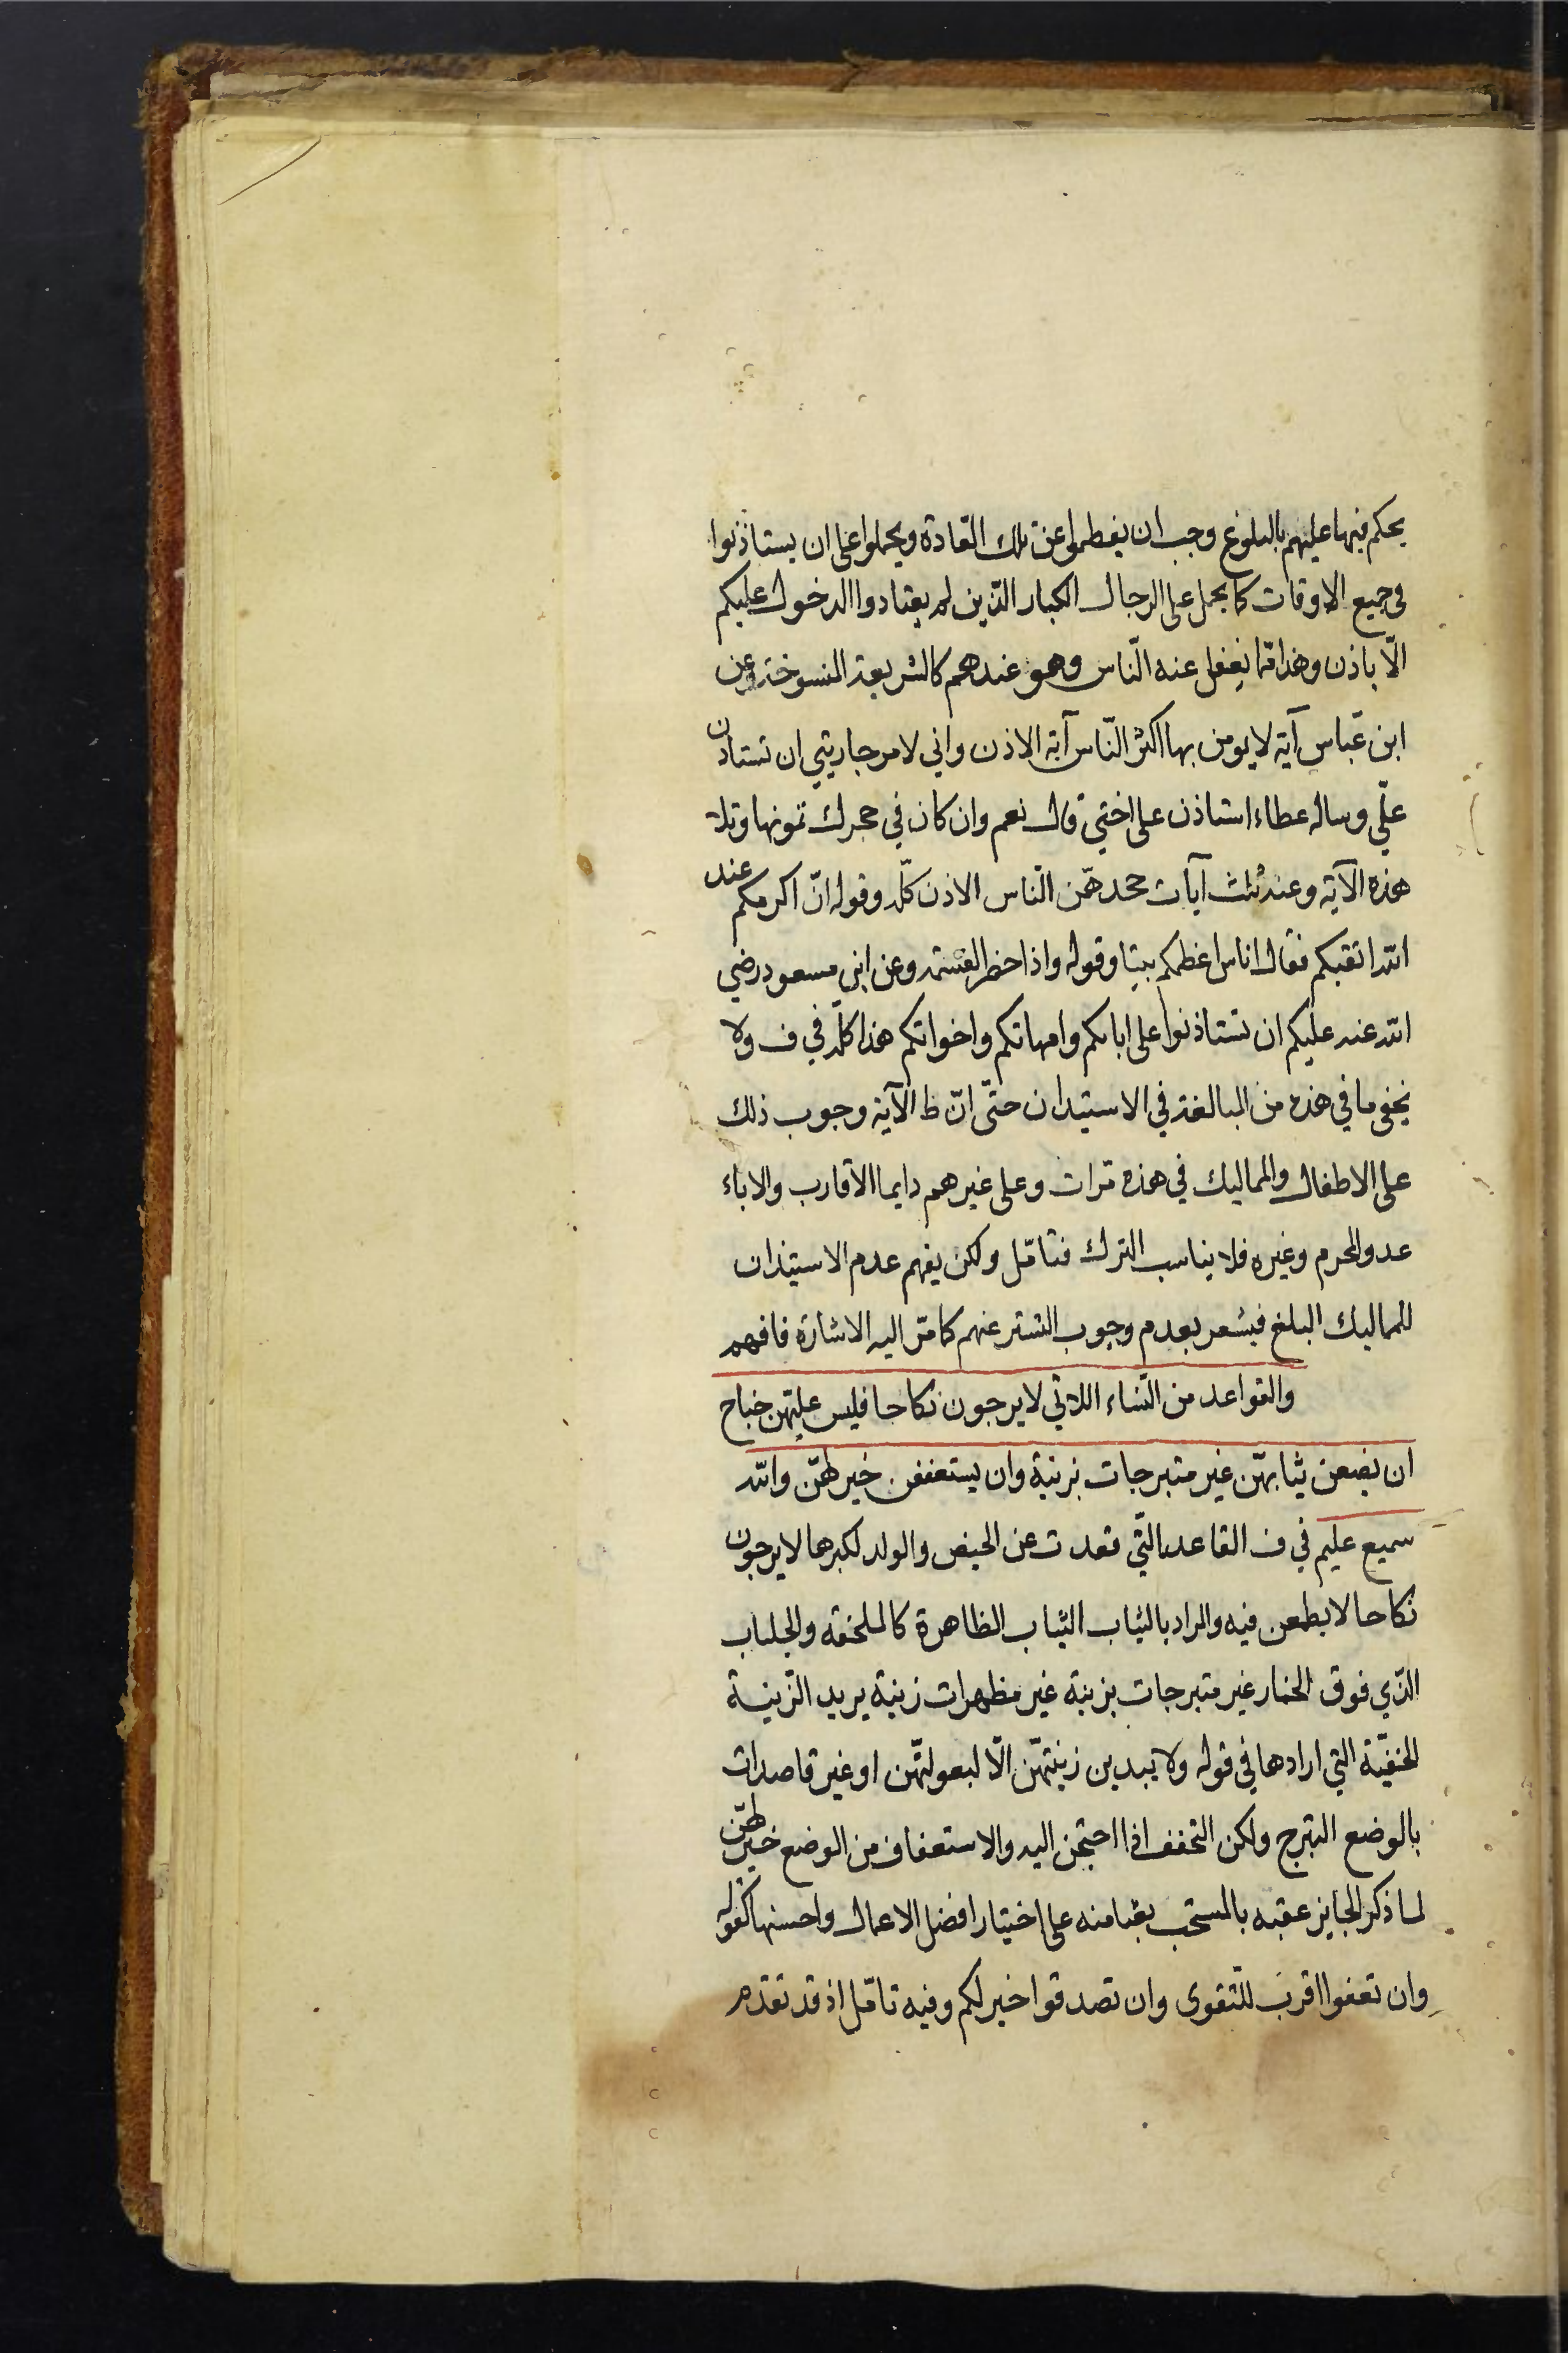 يحكم فيها عليهم بالبلوغ وجب ان يفطموا عن تلك العادة ويحملوا على ان يستاذنوا
في جميع الاوقات كما يحمل على الرجال الكبار الذين لم يعتادوا الدخول عليكم
الّا باذن وهذا ممّا يغفل عنه النّاس وهو عندهم كالشريعة المنسوخة وعن
ابن عبّاس آية لا يومن بها اكثر النّاس آية الاذن واني لامر جاريتي ان تستاذن
علّي وساله عطاء استاذن على اختي قال نعم وان كان في حجرك تمونها وتلا
هذه الآية وعنه ثلث آيات جحدهّن النّاس الاذن كلّه وقوله انّ اكرمكم عند
اللّه اتقيكم فقال اناس اعظمكم بيتا وقوله واذا حضر القسمة وعن ابن مسعود رضي
اللّه عنه عليكم ان تستاذنوا على ابائكم وامهاتكم واخواتكم هذا كلّه في ف ولا
يخفى ما في هذه من المبالغة في الاستيذان حتّى انّ ظ الآية وجوب ذلك
على الاطفال والمماليك في هذه مرات وعلى غيرهم دايما الاقارب والاباء
عد والمحرم وغيره فلا يناسب الترك فتامّل ولكن يفهم عدم الاستيذان
للمماليك البلغ فيشعر بعدم وجوب التستر عنهم كما مرّ اليه الاشارة فافهم
والقواعد من النّساء اللاتي لا يرجون نكاحا فليس عليهن جناح
ان يضعن ثيابهّن غير متبرجات بزينة وان يستعففن خير لهنّ واللّه
سميع عليم في ف القاعد الّتي قعدت عن الحيض والولد لكبرها لا يرجون
نكاحا لا يطمعن فيه والمراد بالثياب الثياب الظاهرة كالملحفه والجلباب
الذّي فوق الخمار غير متبرجات بزينة غير مظهرات زينة يريد الزّينة
الخفيّة التي ارادها في قوله ولا يبدين زينتهّن الّا لبعولتهّن او غير قاصدات
بالوضع التبرج ولكن التخفف اذا احتجن اليه والاستعفاف من الوضع خير لهنّ
لما ذكر الجايز عقبه بالمستحب بعثا منه على اختيار افضل الاعمال واحسنها كقوله
وان تعفوا اقرب للتّقوى وان تصدقوا خير لكم وفيه تامّل اذ قد تقدم